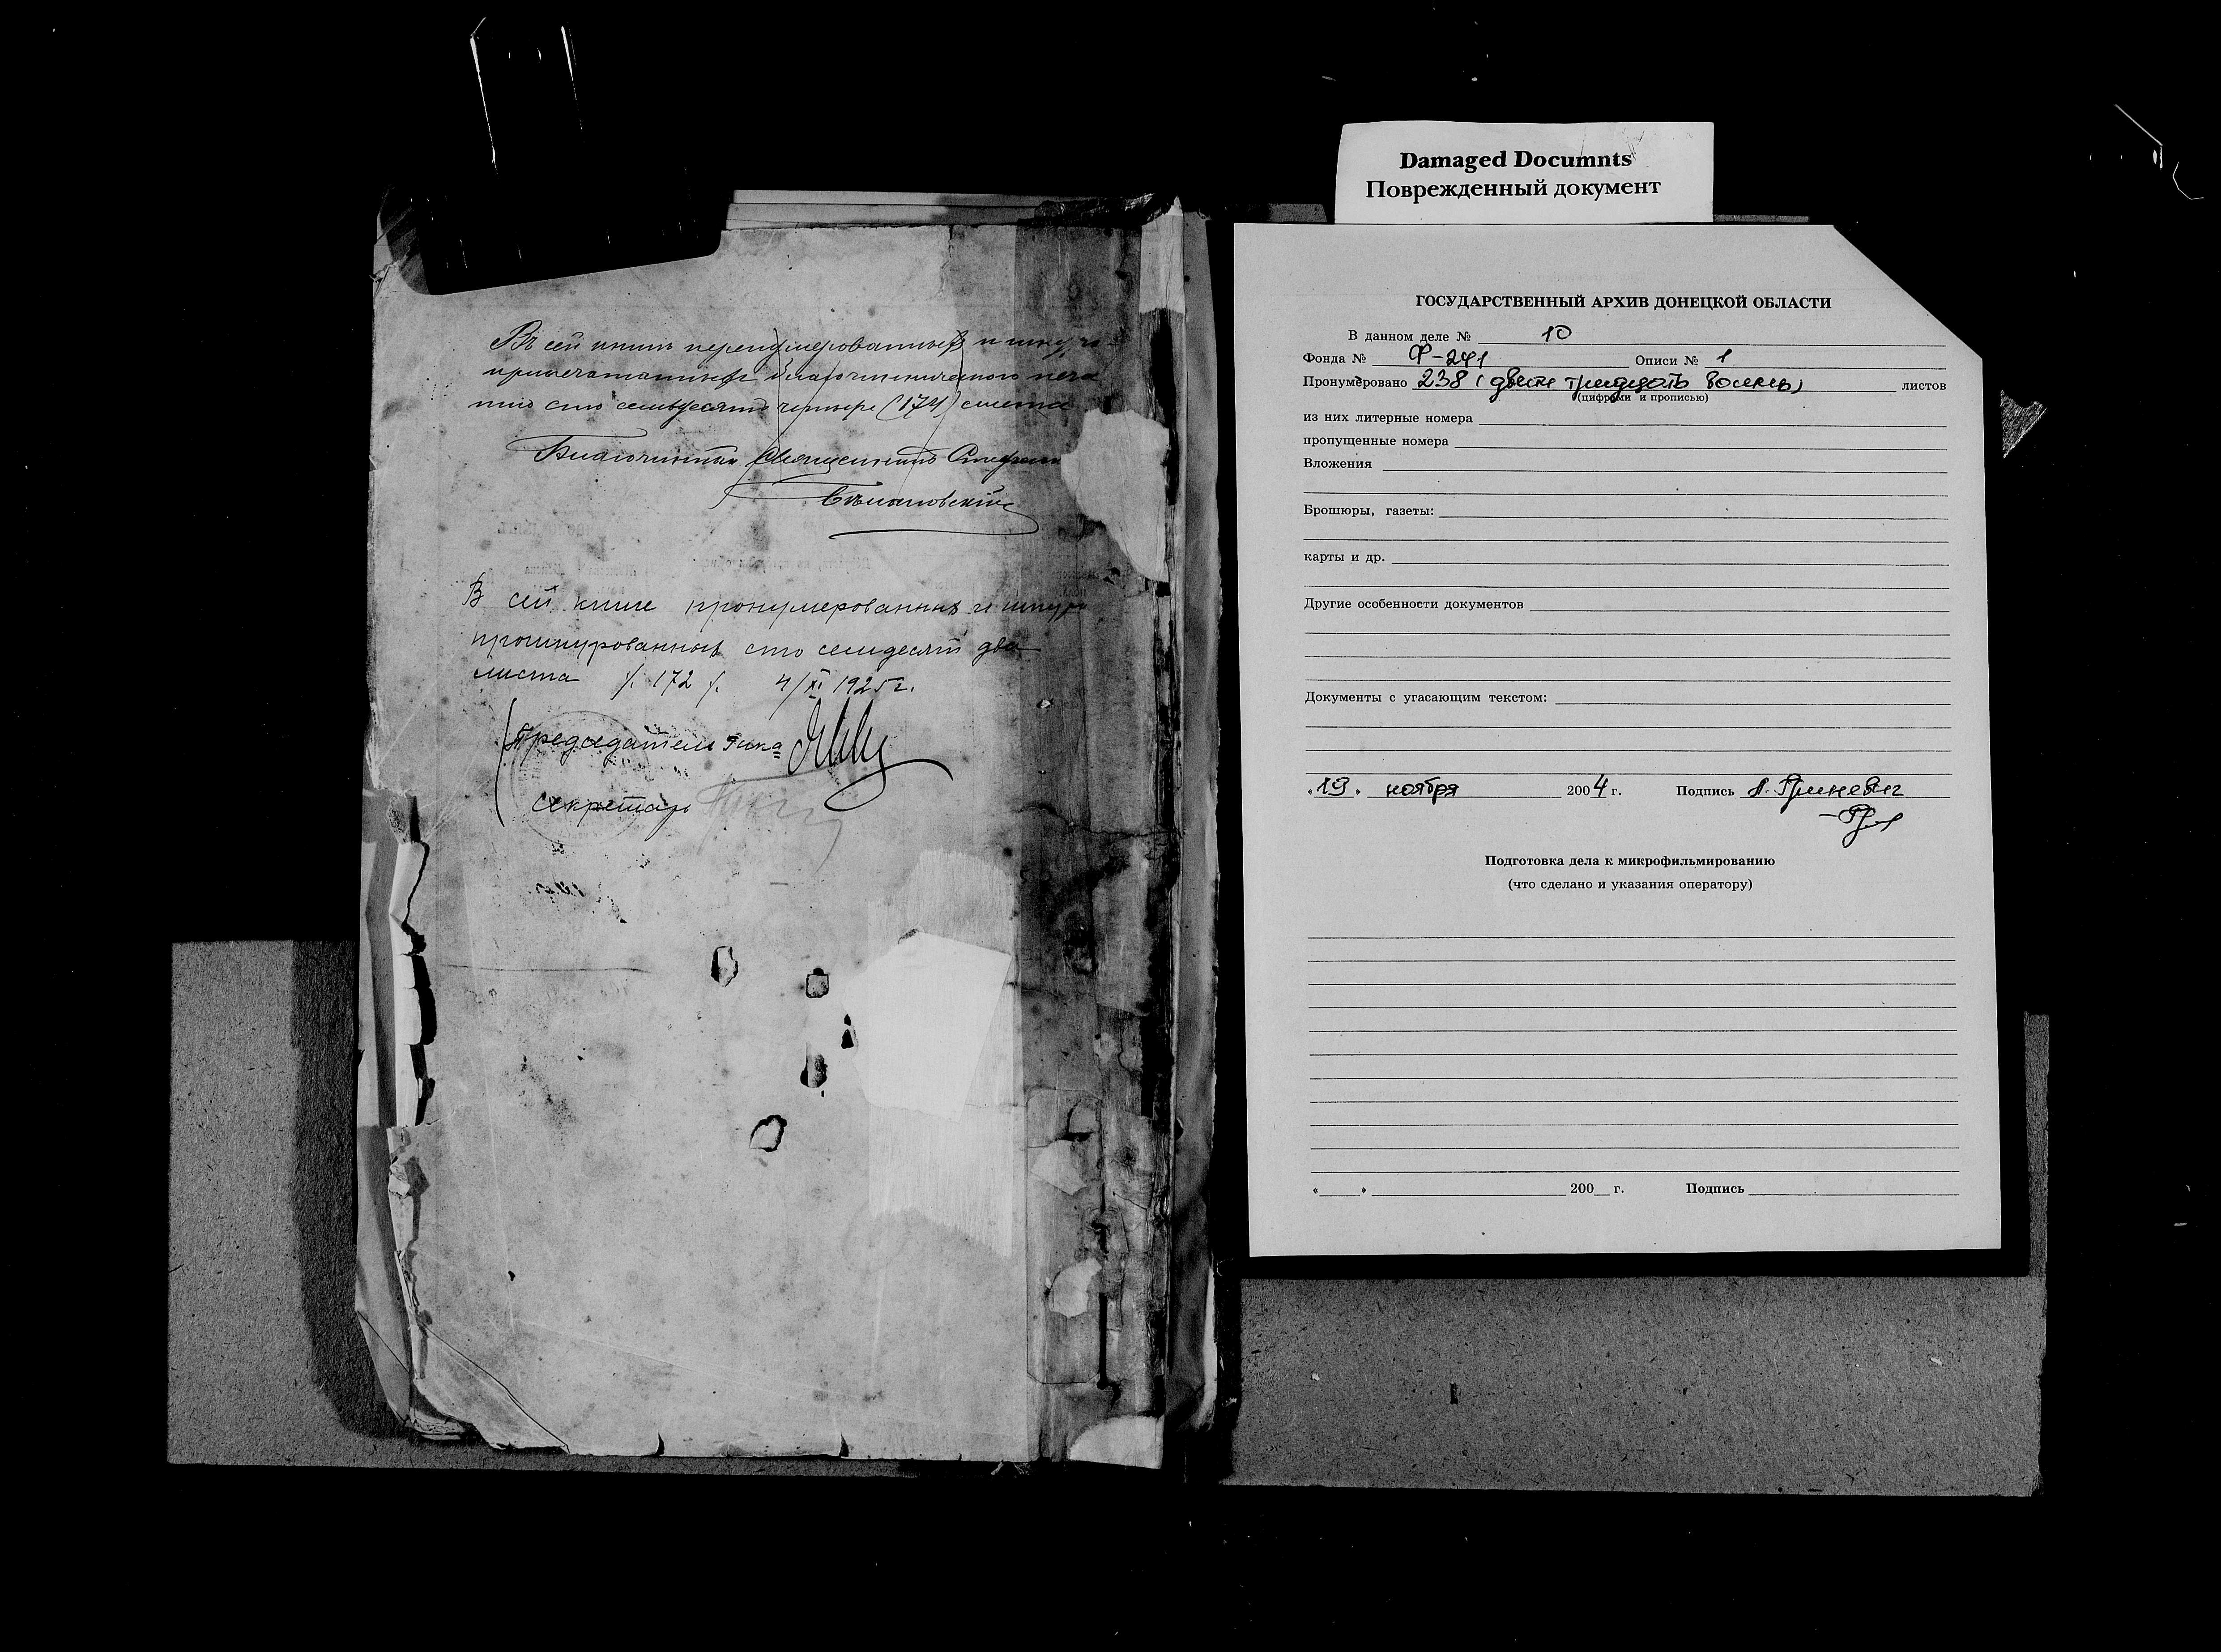 Въ сей книгѣ перенумерованныхъ и шнуро-
припечатанныхъ благочинническою печа
тью сто семьдесятъ четыре (174) листа
Благочинный Священникъ Стефанъ
В сей книге пронумерованных и шнуро
прошнурованных сто семдесят два
листа /. 172 /. 4/XI 1925 г.
Председатель Рика
Секретарь
Damaged Documnts
Поврежденный документ
ГОСУДАРСТВЕННЫЙ АРХИВ ДОНЕЦКОЙ ОБЛАСТИ
В данном деле № 10
Фонда № Ф-241 Описи № 1
Пронумеровано 238 (двести тридцать восемь) листов
(цифрами и прописью)
из них литерные номера
пропущенные номера
Вложения
Брошюры, газеты:
карты и др.
Другие особенности документов
Документы с угасающим текстом:
«19» ноября 2004 г. Подпись Л. Гриневич
Подготовка дела к микрофильмированию
(что сделано и указания оператору)
« » 200 г. Подпись